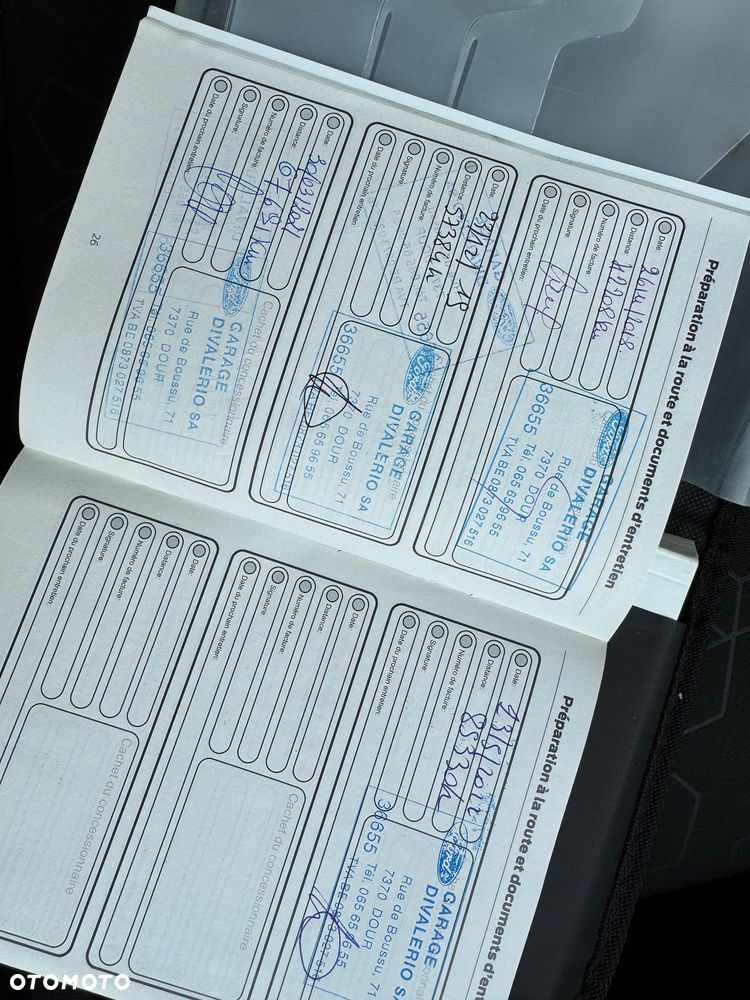 Préparation à la route et documents d'entretien
Date: 26/4/2018
Distance: 42208 km
Numéro de facture:
Signature:
Date du prochain entretien:
GARAGE
DIVALERIO SA
Rue de Boussu, 71
7370 DOUR
36655 Tél. 065 65 96 55
TVA BE 0873 027 516
Date:
Distance: 57384 km
Numéro de facture:
Signature:
Date du prochain entretien:
GARAGE
DIVALERIO SA
Rue de Boussu, 71
7370 DOUR
36655 Tél. 065 65 96 55
Date: 30/03/2021
Distance: 67691 km
Numéro de facture:
Signature:
Date du prochain entretien:
Cachet du concessionnaire
GARAGE
DIVALERIO SA
Rue de Boussu, 71
7370 DOUR
36655 Tél. 065 65 96 55
TVA BE 0873 027 516
26
Préparation à la route et documents d'en
Date:
Distance:
Numéro de facture:
Signature:
Date du prochain entretien:
GARAGE
DIVALERIO SA
Rue de Boussu, 71
7370 DOUR
36655 Tél. 065 65 96 55
TVA BE 0873 027 516
Date:
Distance:
Numéro de facture:
Signature:
Date du prochain entretien:
Cachet du concessionnaire
Date:
Distance:
Numéro de facture:
Signature:
Date du prochain entretien:
Cachet du concessionnaire
OTOMOTO